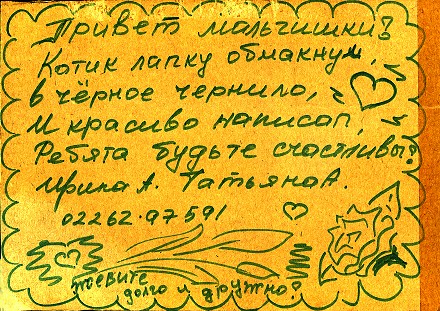 Привет мальчишки?
Котик лапку обмакнул,
в чёрное чернило,
И красиво написал,
Ребята будьте счастливы?
Ирина А. Татьяна А.
02262.97591
живите
долго и дружно?